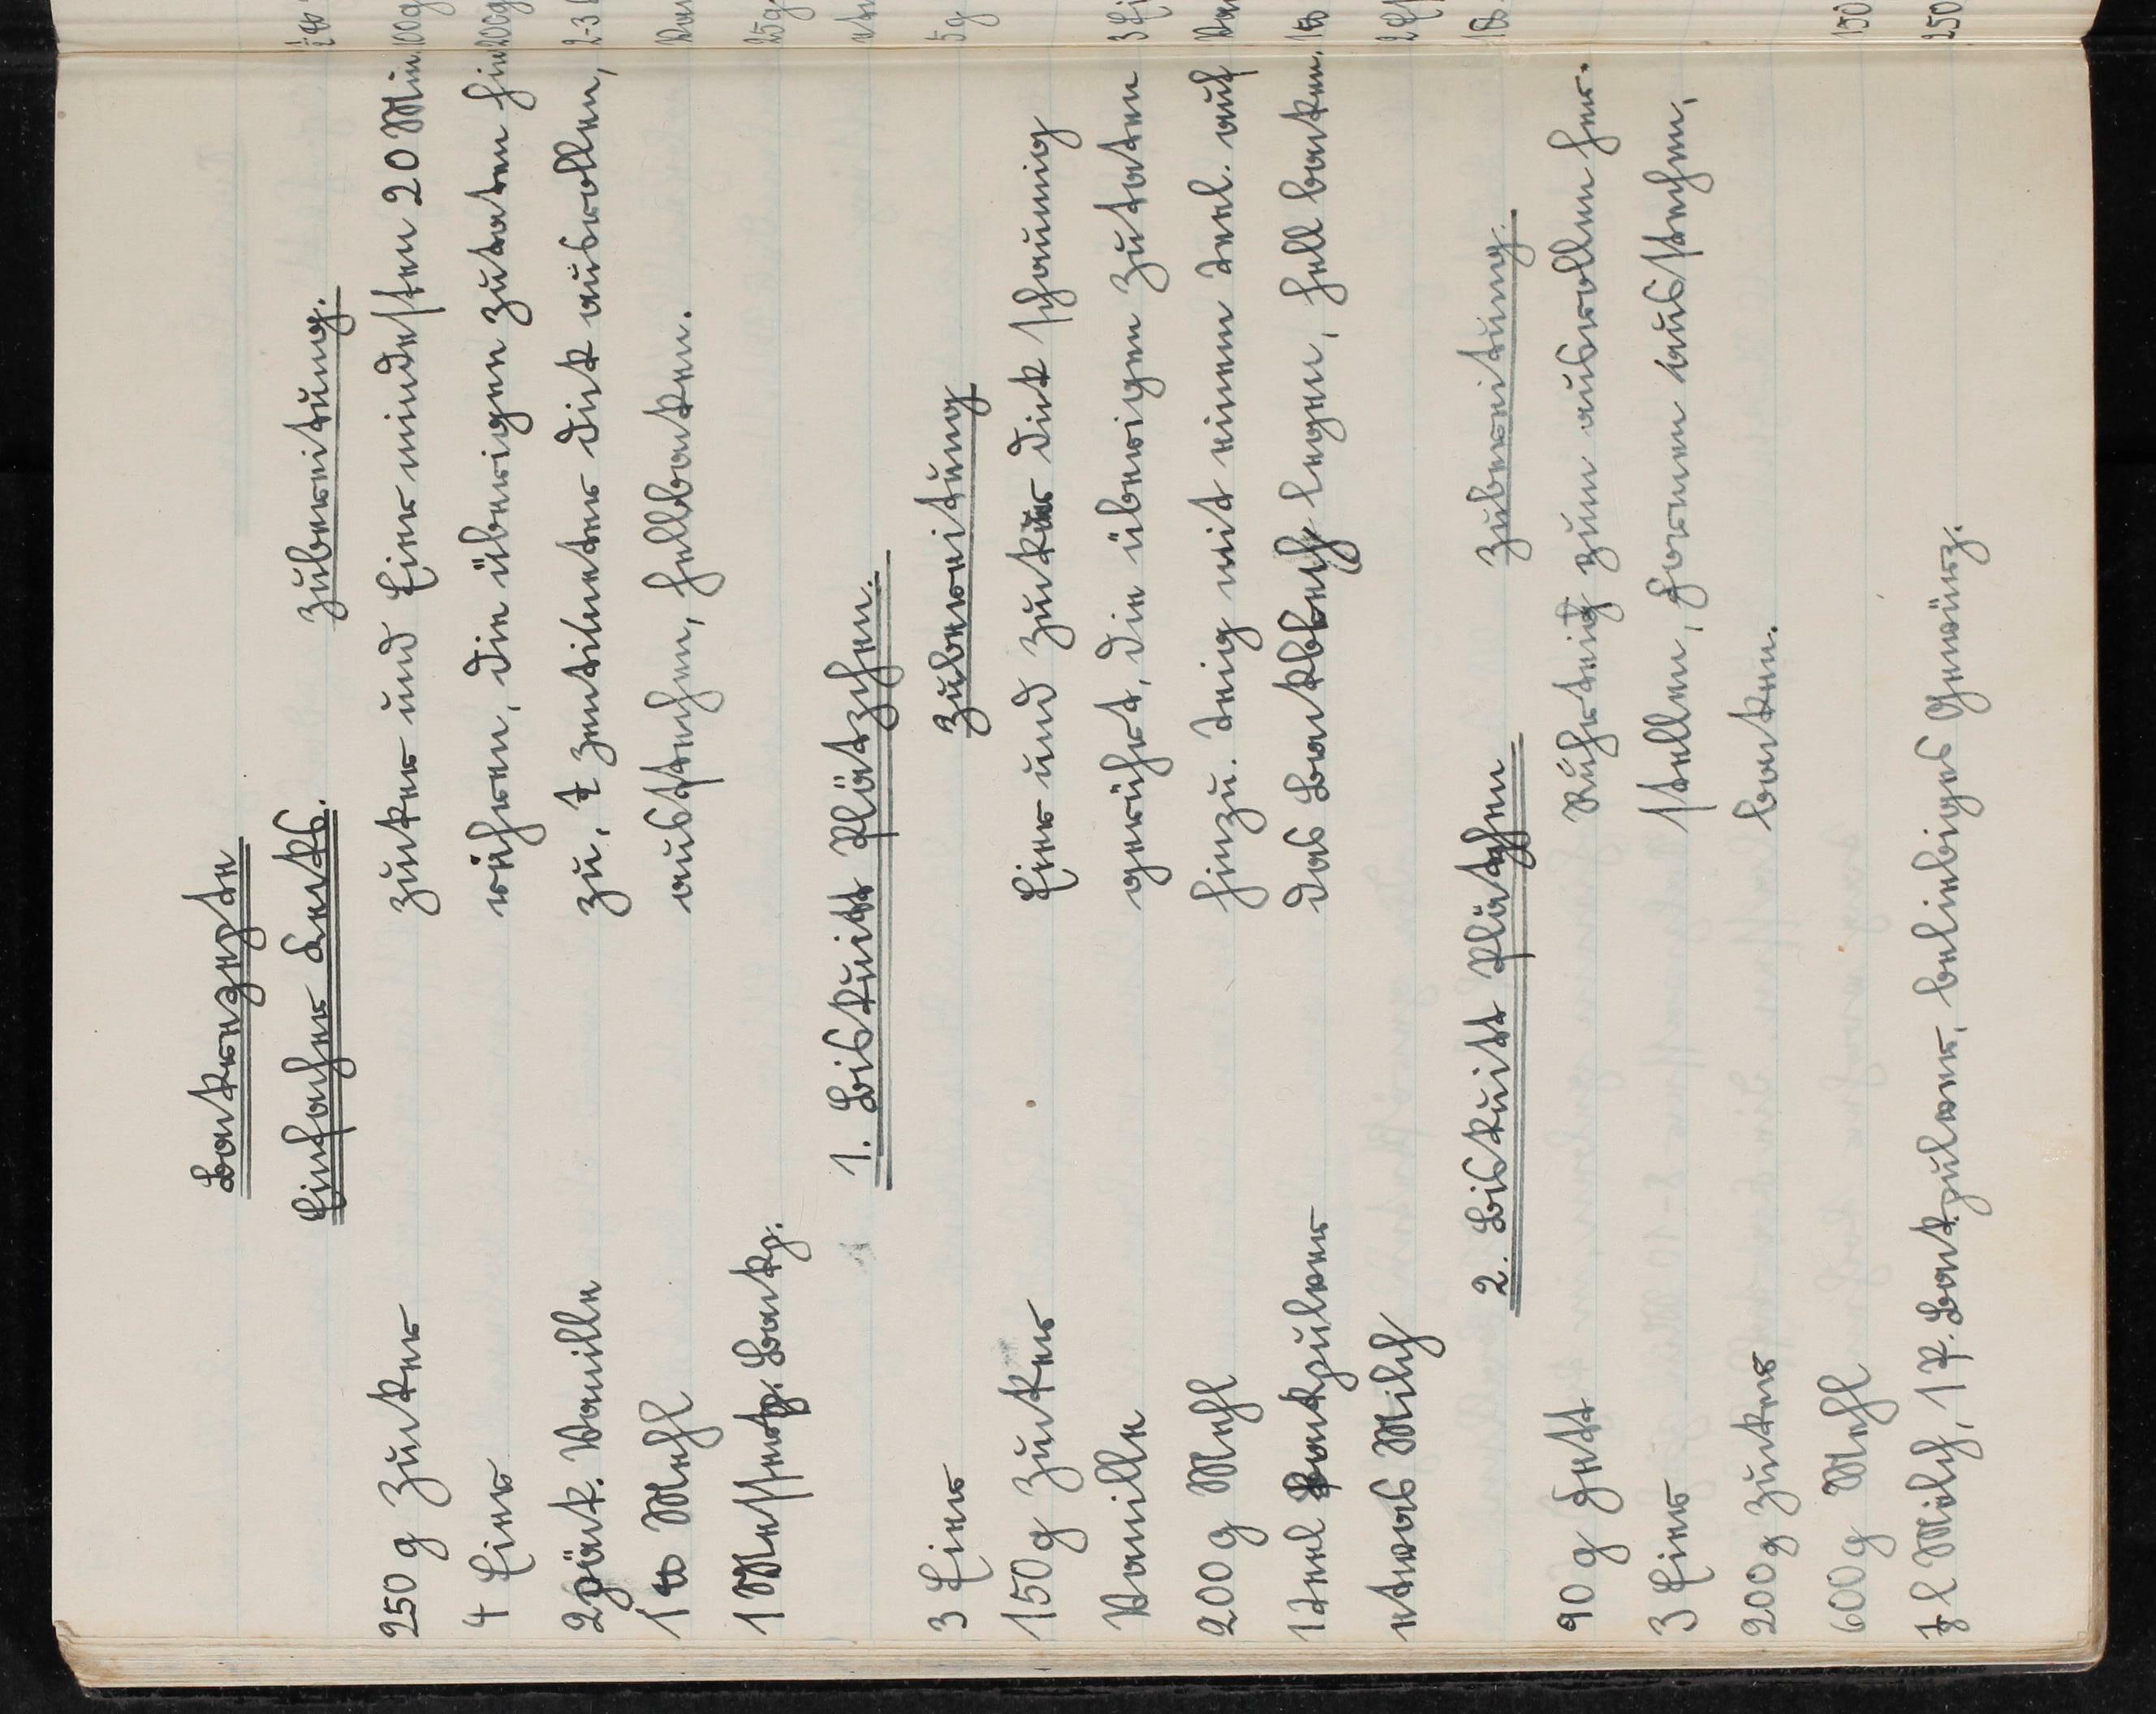 Backrezepte
Einfacher Keks.
Zubereitung.
250 g Zucker
4 Eier
2 päck. Vanille
1 ℔ Mehl
1 Messersp. Backp.
Zucker und Eier mindesten 20 Min
rühren, die übrigen Zutaten hin
zu, ½ Zentimeter dick ausrollen,
ausstechen, hellbacken.
1. Biskuitt Plätzchen.
Zubereitung
3 Eier
150 g Zucker
Vanille
200 g Mehl
1 Teel Backpulver
etwas Milch
Eier und Zucker dick schaumig
gerührt, die übrigen Zutaten
hinzu. Teig mit einem Teel. auf
das Backblech legen, hell backen.
2. Biskuitt Plätzchen
Zubereitung.
90 g Fett
3 Eier
200 g Zucker
600 g Mehl
⅛ l Milch, 1 P. Backpulver, beliebiges Gewürz.
Rührteig zum ausrollen her.
stellen, Formen ausstechen,
backen.